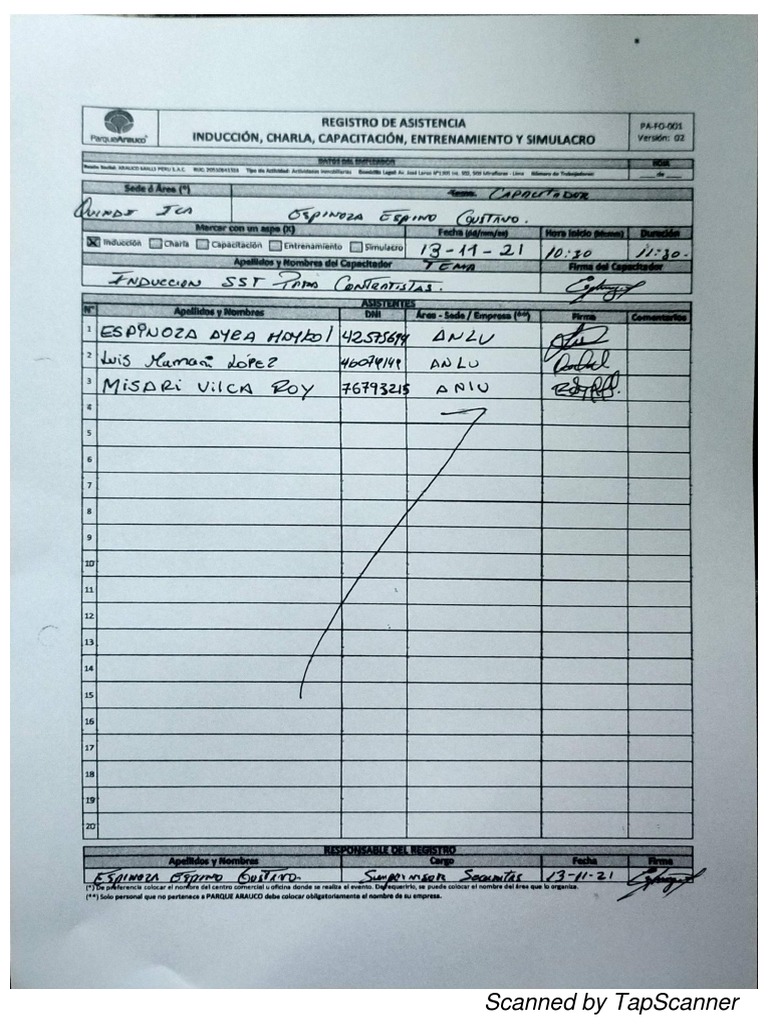 ParqueArauco
REGISTRO DE ASISTENCIA
INDUCCIÓN, CHARLA, CAPACITACIÓN, ENTRENAMIENTO Y SIMULACRO
PA-FO-001
Versión: 02
DATOS DEL EMPLEADOR
HOJA
Razón Social: ARAUCO MALLS PERU S.A.C. Tipo de Actividad: Actividades Inmobiliarias Domicilio Legal: Número de Trabajadores:
___ de ___
Sede ó Área (*)
Tema CAPACITADOR
QUINDE ICA
ESPINOZA ESPINO GUSTAVO.
Marcar con un aspa (X)
Fecha (dd/mm/aa)
Hora Inicio
Duración
X Inducción Charla Capacitación Entrenamiento Simulacro
13-11-21
10:30
11:30.
Apellidos y Nombres del Capacitador
TEMA
Firma del Capacitador
INDUCCION SST PARA CONTRATISTAS.
ASISTENTES
N° Apellidos y Nombres DNI Área - Sede / Empresa (**) Firma Comentarios
1 ESPINOZA AYRA ANLU
2 Luis Mamani López ANLU
3 MISARI VILCA ROY 76793215 ANLU
4
5
6
7
8
9
10
11
12
13
14
15
16
17
18
19
20
RESPONSABLE DEL REGISTRO
Apellidos y Nombres Cargo Fecha Firma
ESPINOZA ESPINO GUSTAVO. 13-11-21
(*) De preferencia colocar el nombre del centro comercial u oficina donde se realiza el evento. De requerirlo, se puede colocar el nombre del área que lo organiza.
(**) Solo personal que no pertenece a PARQUE ARAUCO debe colocar obligatoriamente el nombre de su empresa.
Scanned by TapScanner